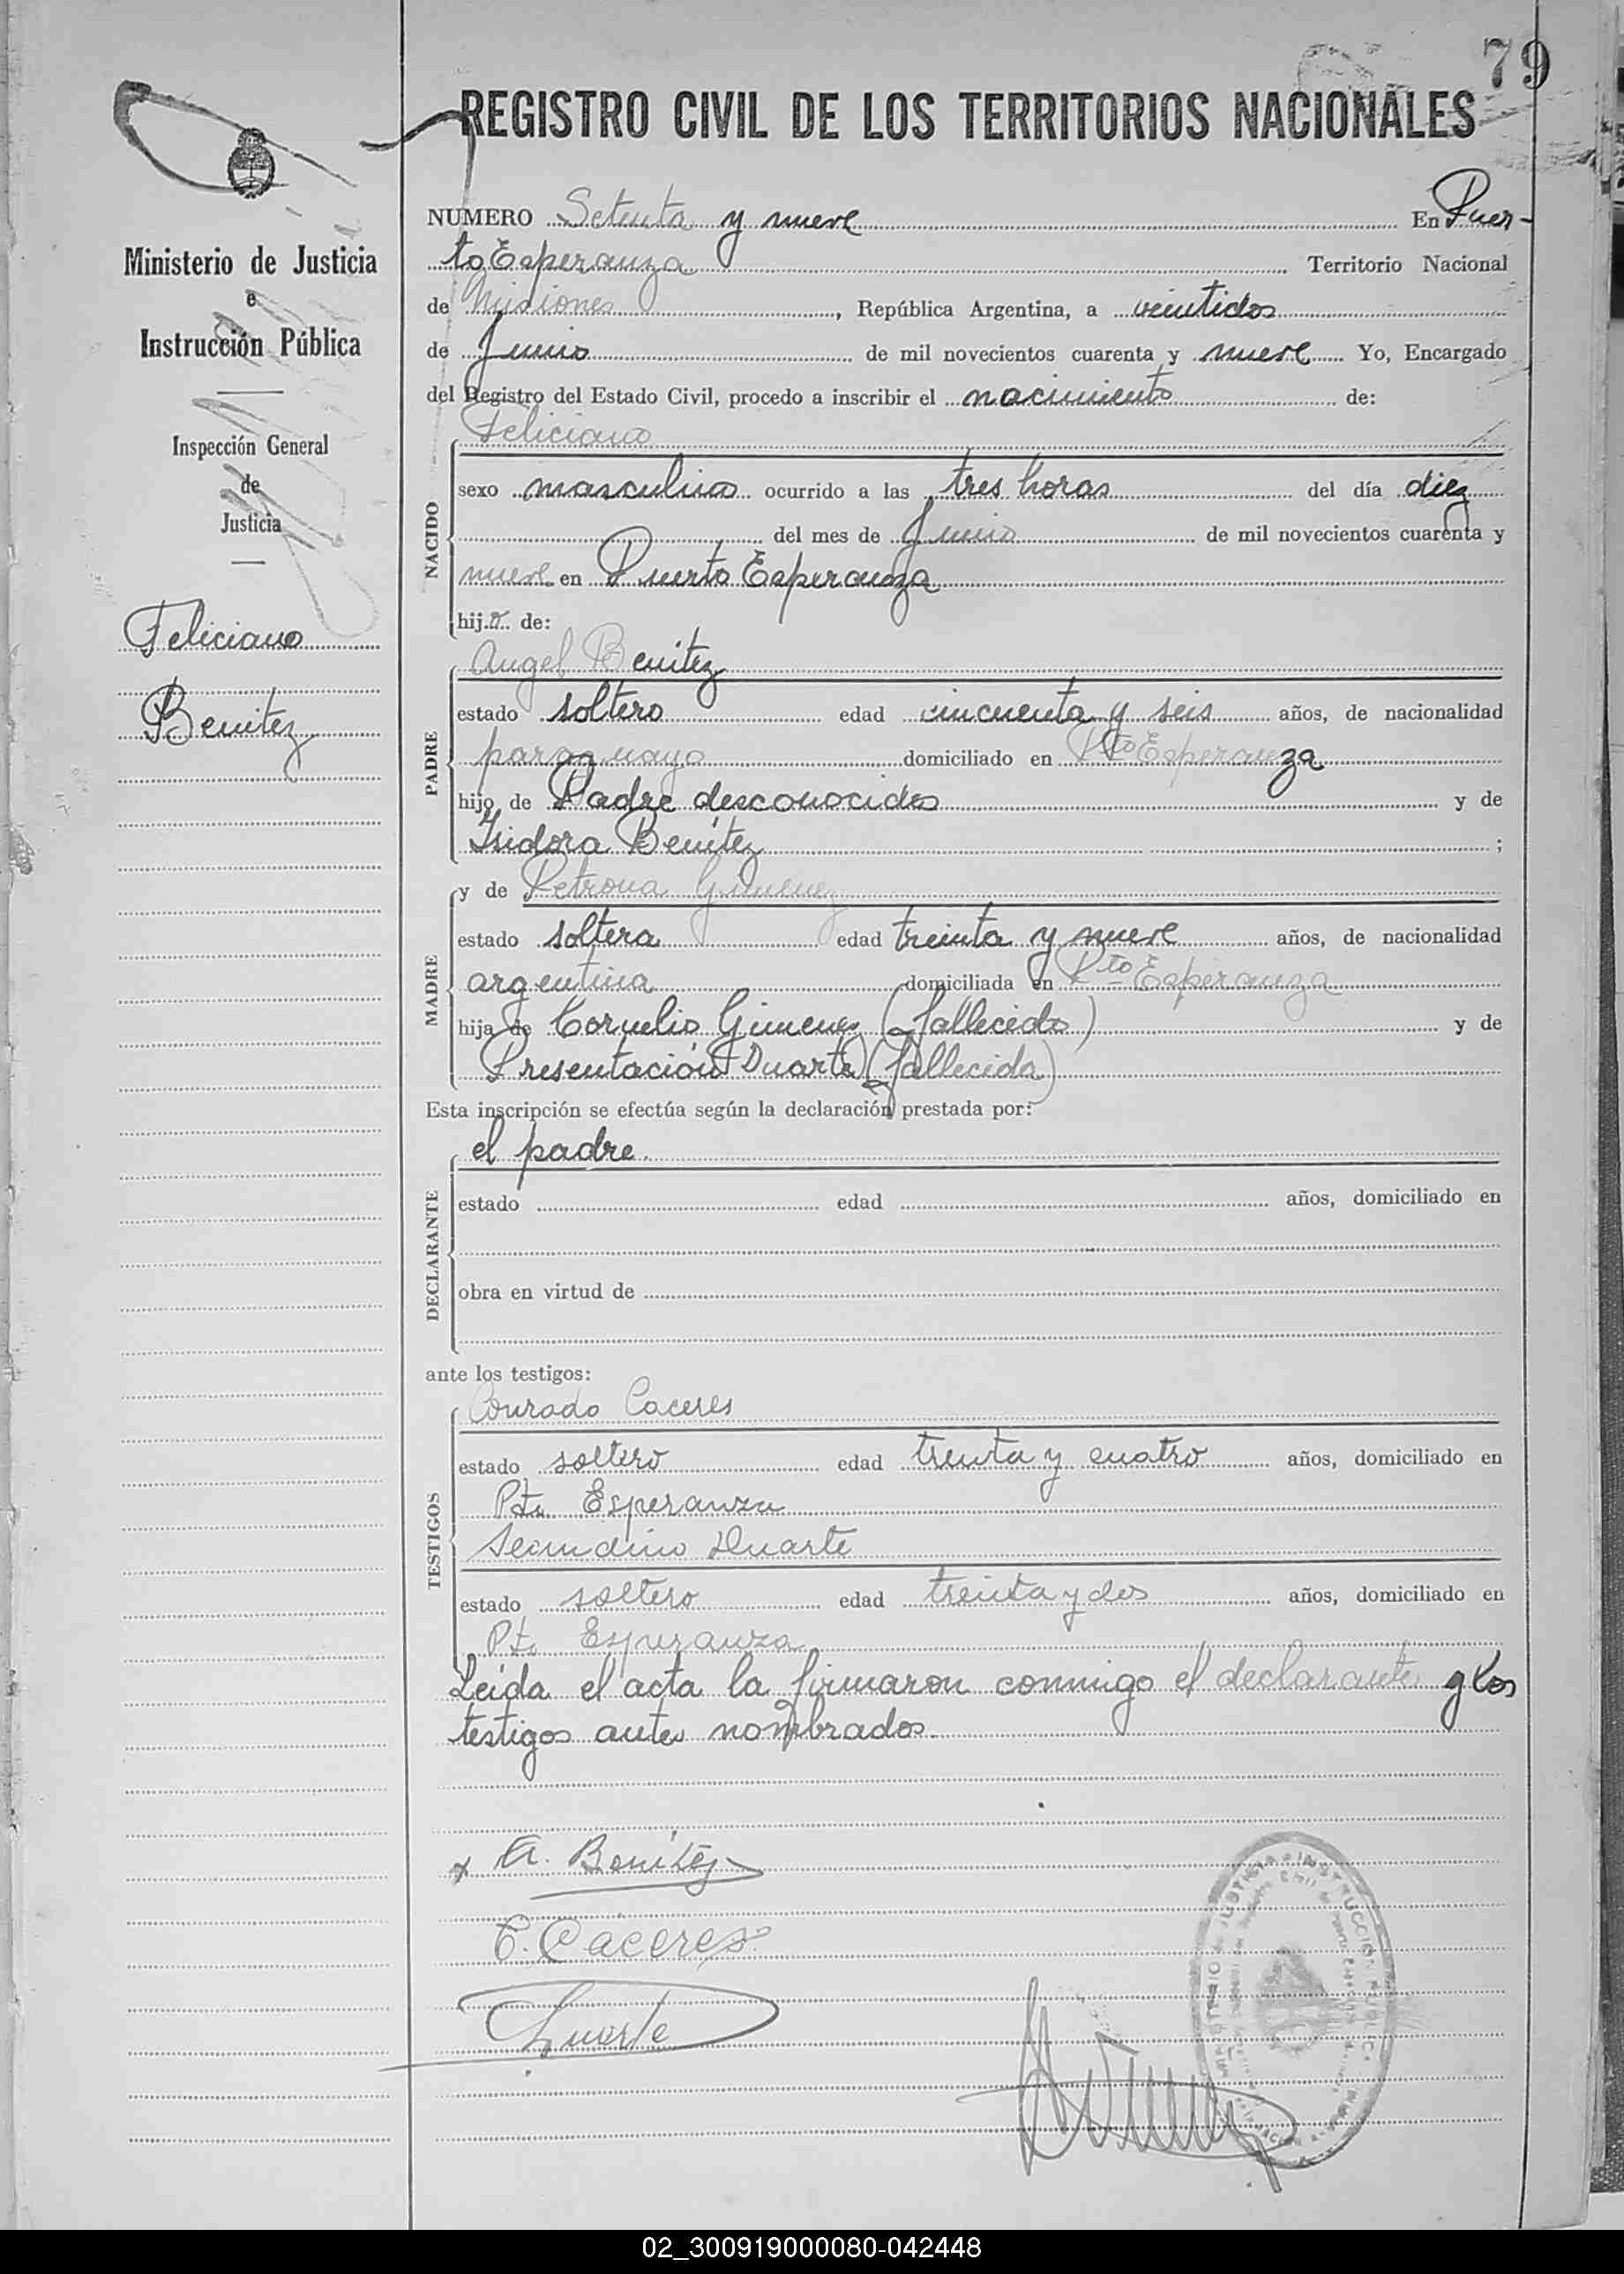 79
REGISTRO CIVIL DE LOS TERRITORIOS NACIONALES
Ministerio de Justicia
e
Instrucción Pública
Inspección General
de
Justicia
Feliciano
Benitez
NUMERO Setenta y nueve En Puer-
to Esperanza Territorio Nacional
de Misiones, República Argentina, a veintidos
de Junio de mil novecientos cuarenta y nueve Yo, Encargado
del Registro del Estado Civil, procedo a inscribir el nacimiento de:
NACIDO
Feliciano
sexo masculino ocurrido a las tres horas del día diez
del mes de Junio de mil novecientos cuarenta y
nueve en Puerto Esperanza
hijo de:
PADRE
Angel Benitez
estado soltero edad cincuenta y seis años, de nacionalidad
paraguayo domiciliado en Pto Esperanza
hijo de Padre desconocido y de
Isidora Benítez ;
MADRE
y de Petrona Gimenez
estado soltera edad treinta y nueve años, de nacionalidad
argentina domiciliada en Pto Esperanza
hija de Cornelio Gimenez (fallecido) y de
Presentación Duarte (fallecida)
Esta inscripción se efectúa según la declaración prestada por:
DECLARANTE
el padre.
estado edad años, domiciliado en
obra en virtud de
ante los testigos:
TESTIGOS
Conrado Caceres
estado soltero edad trenta y cuatro años, domiciliado en
Pto Esperanza
Secundino Duarte
estado soltero edad treinta y dos años, domiciliado en
Pto Esperanza
Leída el acta la firmaron conmigo el declarante y los
testigos antes nombrados.
x A. Benítez
C. Caceres
Duarte
02_300919000080-042448